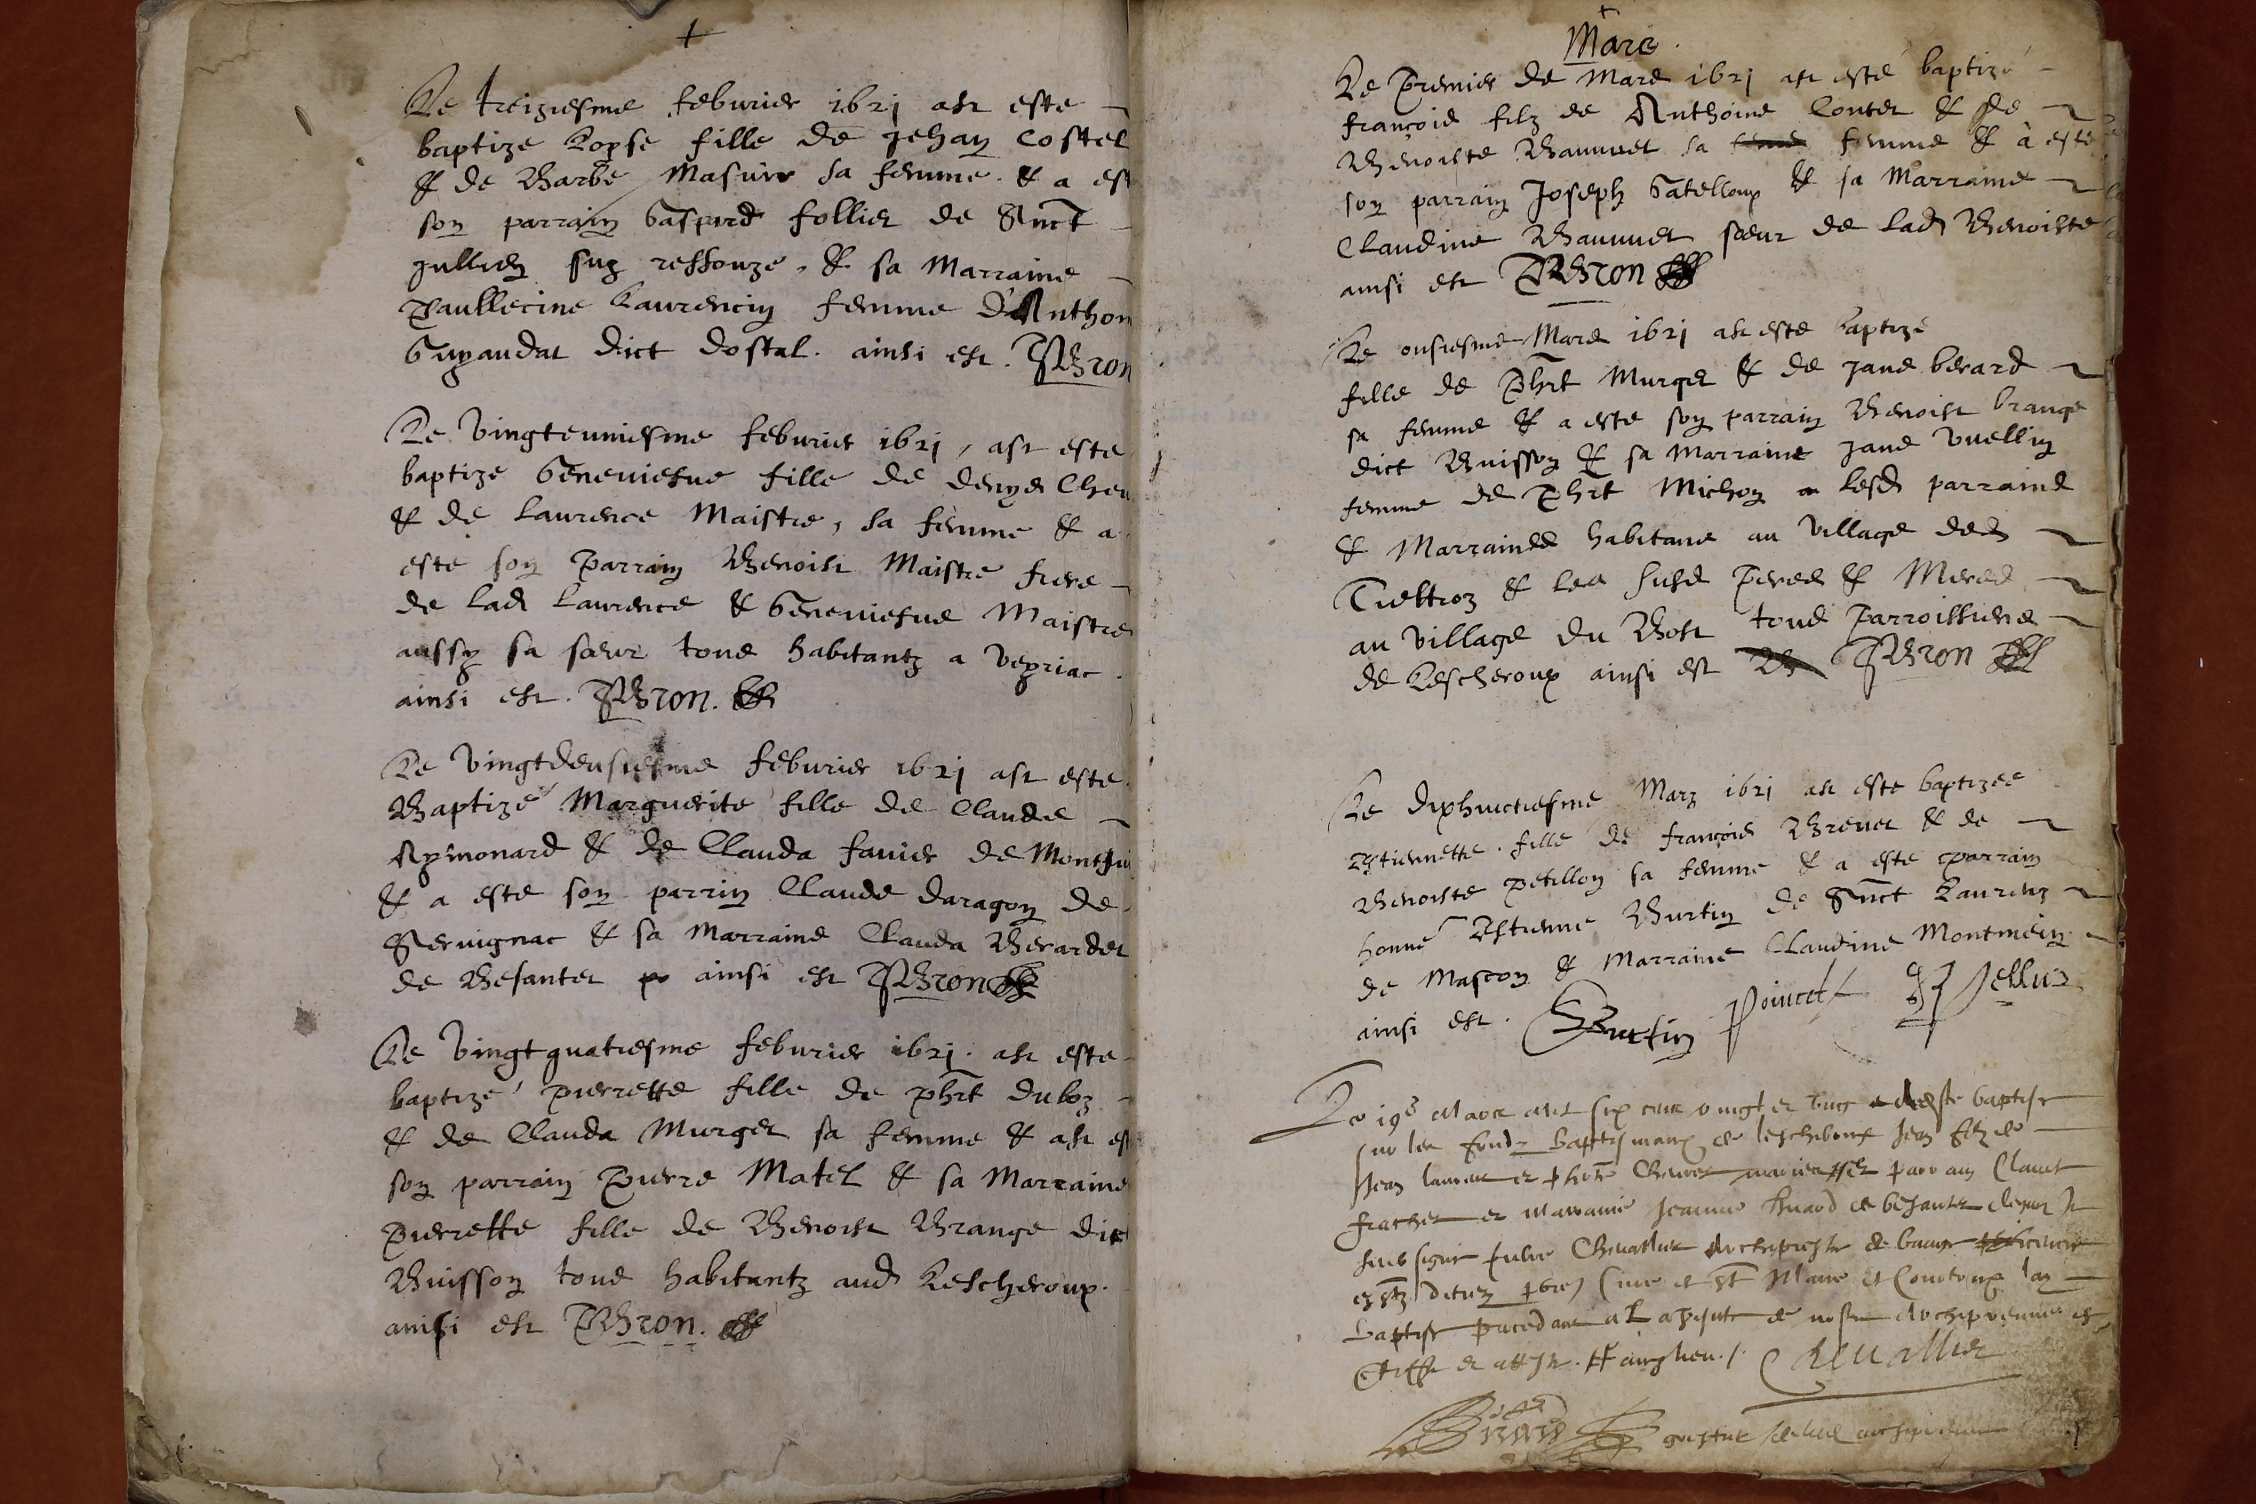 Le treiziesme feburier 1621 ast este
baptize Loyse fille de Jehan Costel
& de Barbe Masuir sa femme. & a est
son parrain Gaspard follier de Sainct
Jullien sus ressouze, & sa Marraine
Paullecine Laurencin femme d'Anthon
Guyaudat dict dostal. ainsi est. PBron
Le vingteuniesme feburier 1621, ast este
baptize Geneuiefue fille de denys Chev
& de Laurence Maistre, sa femme & a
este son Parrain Benoist Maistre frere
de lad Laurence & Geneuiefue Maistre
aussy sa sœur tous habitantz a Vegriac.
ainsi est. PBron.
Le vingtdeusiesme feburier 1621 ast este
Baptizé Marguerite fille de Claude
Aymonard & de Clauda fauier de Montjui
& a este son parrin Claude daragon de
Seruignac & sa Marraine Clauda Berardet
de Besantet ainsi est PBron
Le vingtquatriesme feburier 1621. ast este
baptizé Pierrette fille de phrt duboz
& de Clauda Murget sa femme & ast est
son parrain Pierre Matel & sa Marraine
Pierrette fille de Benoist Brange dict
Buisson tous habitantz aud Lescheroux.
ainsi est PBron.
Mars.
Le Premier de Mars 1621 ast esté baptizé
françois filz de Anthoine Contet & de
Benoiste Bauuuet sa femme & à esté
son parrain Joseph Gatelloux & sa Marraine
Claudine Bauuuet sœur de lad Benoiste
ainsi est PBron
Le onsiesme Mars 1621 ast este baptizé
fille de Phrt Murget & de Jane berard
sa femme & a este son parrain Benoist brange
dict Buisson & sa Marraine Jane vuellin
femme de Phrt Michon lesd parrains
& Marraines habitans au Village des
Tueltroz & les susd Peres & Meres
au village du Bost tous Parroissiens
de Lescheroux ainsi est PBron
Le dixhuictiesme Marz 1621 ast este baptizee
Estiennette. fille de françois Breuet & de
Benoiste Petillon sa femme & a este parrain
honne Estienne Burtin de Sainct Laurenz
de Mascon & Marraine Claudine Montmein
ainsi est. Burtin Poincet Pellus
Le 19e Mars mil six cent vingt et ung a este baptise
sur les fondz Baptismaux de lescheroux Jean filz de
Jean et parrain Claude
frachet et Marraine Jeanne de besantet
Baptise
Cheuallier